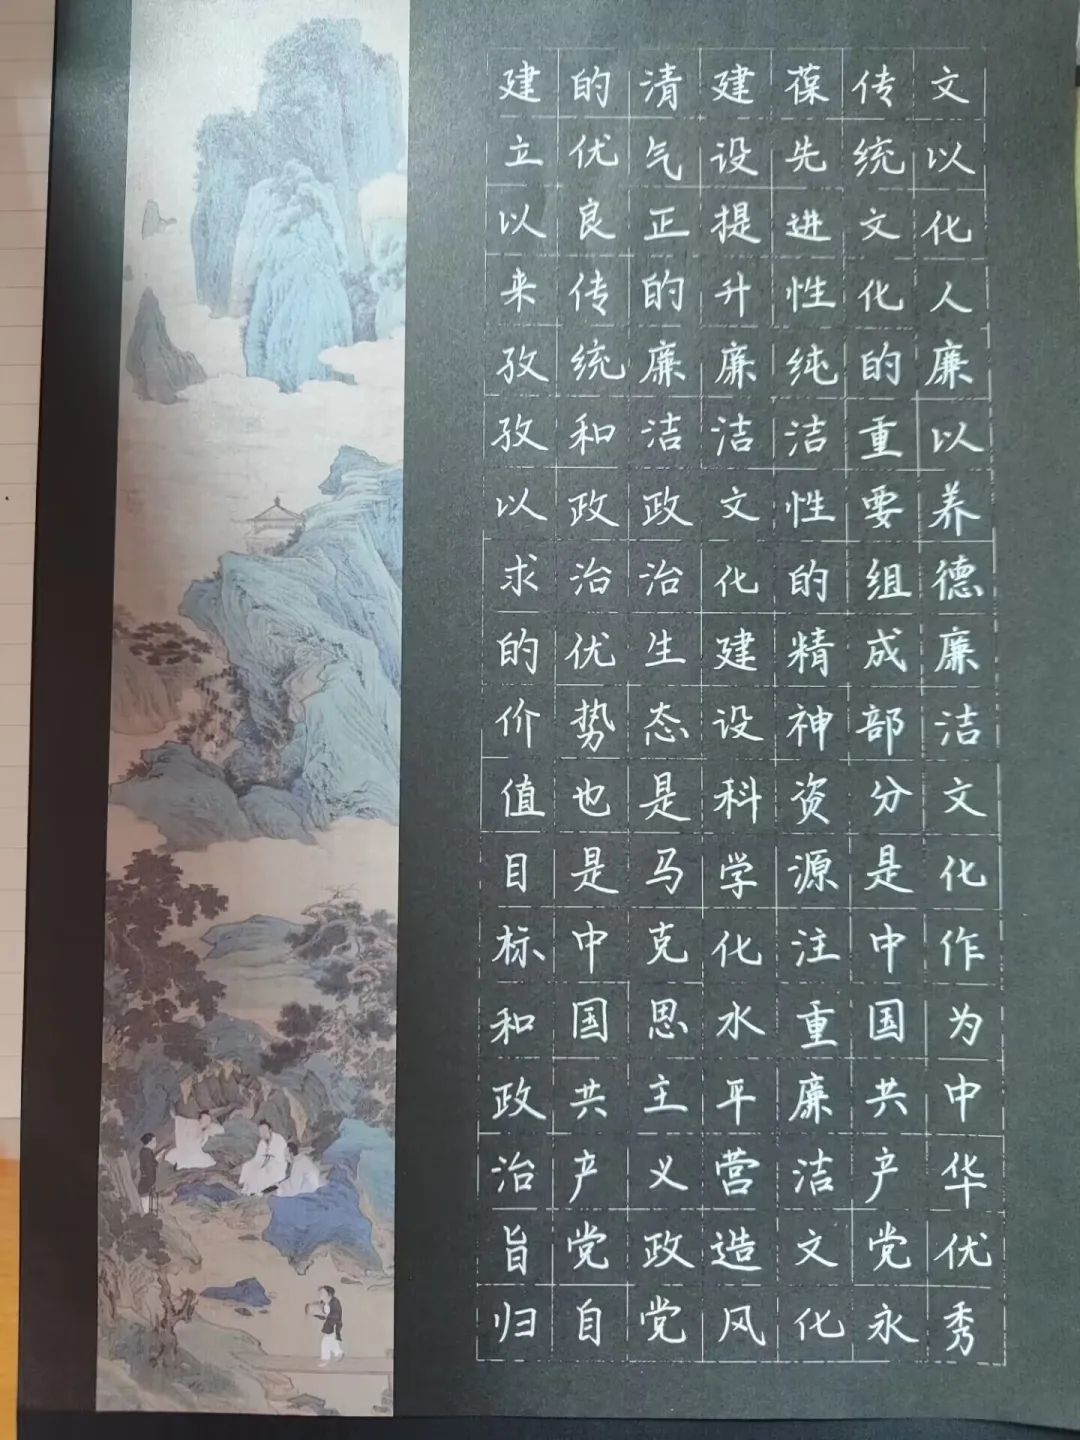 文以化人廉以养德廉洁文化作为中华优秀
传统文化的重要组成部分是中国共产党永
葆先进性纯洁性的精神资源注重廉洁文化
建设提升廉洁文化建设科学化水平营造风
清气正的廉洁政治生态是马克思主义政党
的优良传统和政治优势也是中国共产党自
建立以来孜孜以求的价值目标和政治旨归